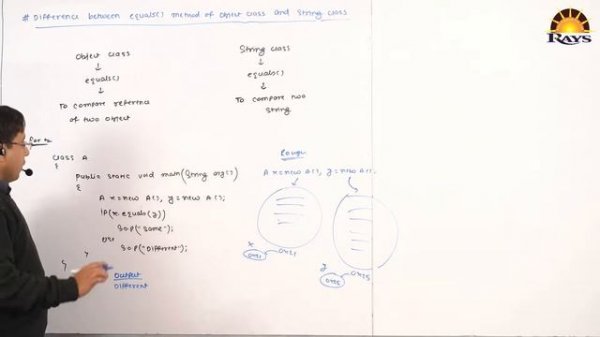 # Difference between equals() method of Object class and String class
RAYS
Object class
↓
equals()
↓
To compare reference
of two object
String class
↓
equals()
↓
To compare two
String
class A
{
public static void main(String arg[])
{
A x=new A(), y=new A();
if(x.equals(y))
S.o.p("same");
else
S.o.p("Different");
}
}
Output
Different
Rough
A x=new A(), y=new A();
x
y